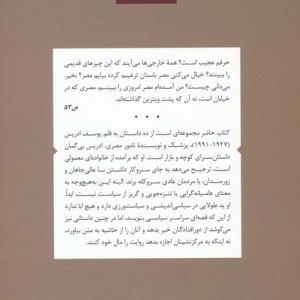 حرفم عجیب است؟ همهٔ خارجی‌ها می‌آیند که این چیزهای قدیمی
را ببینند؟ خیال می‌کنی مصر باستان ترغیبم کرده بیایم مصر؟ نخیر.
می‌دانی چیست؟ من آمده‌ام مصر امروزی را ببینم، مصری که در
خیابان است، نه آن که پشت ویترین گذاشته‌اند.
ص۵۳
• • •
کتاب حاضر مجموعه‌ای است از ده داستان به قلم یوسف ادریس
(۱۹۲۷-۱۹۹۱)، پزشک و نویسندهٔ نامور مصری. ادریس بی‌گمان
داستان‌سرای کوچه و بازار است. او که برآمده از خانواده‌ای معمولی
است، ترجیح می‌دهد به جای سروکار داشتن با عالی‌جاهان و
زورمندان، با مردمان عادی سروکله بزند. البته این به‌هیچ‌وجه به
معنای عامیانه‌گرایی یا تنزه‌جویی و گریز از سیاست نیست. ابداً.
او ید طولایی در سیاسی‌اندیشی و سیاست‌ورزی دارد و هیچ ابا ندارد
از این که قصه‌ای سراسر سیاسی بنویسد، اما در چنین داستانی نیز
می‌کوشد از دورافتادگان خبر بدهد و آنان را از حاشیه به متن بیاورد،
نه اینکه به مرکزنشینان اجازه بدهد روایت را مال خود کنند.